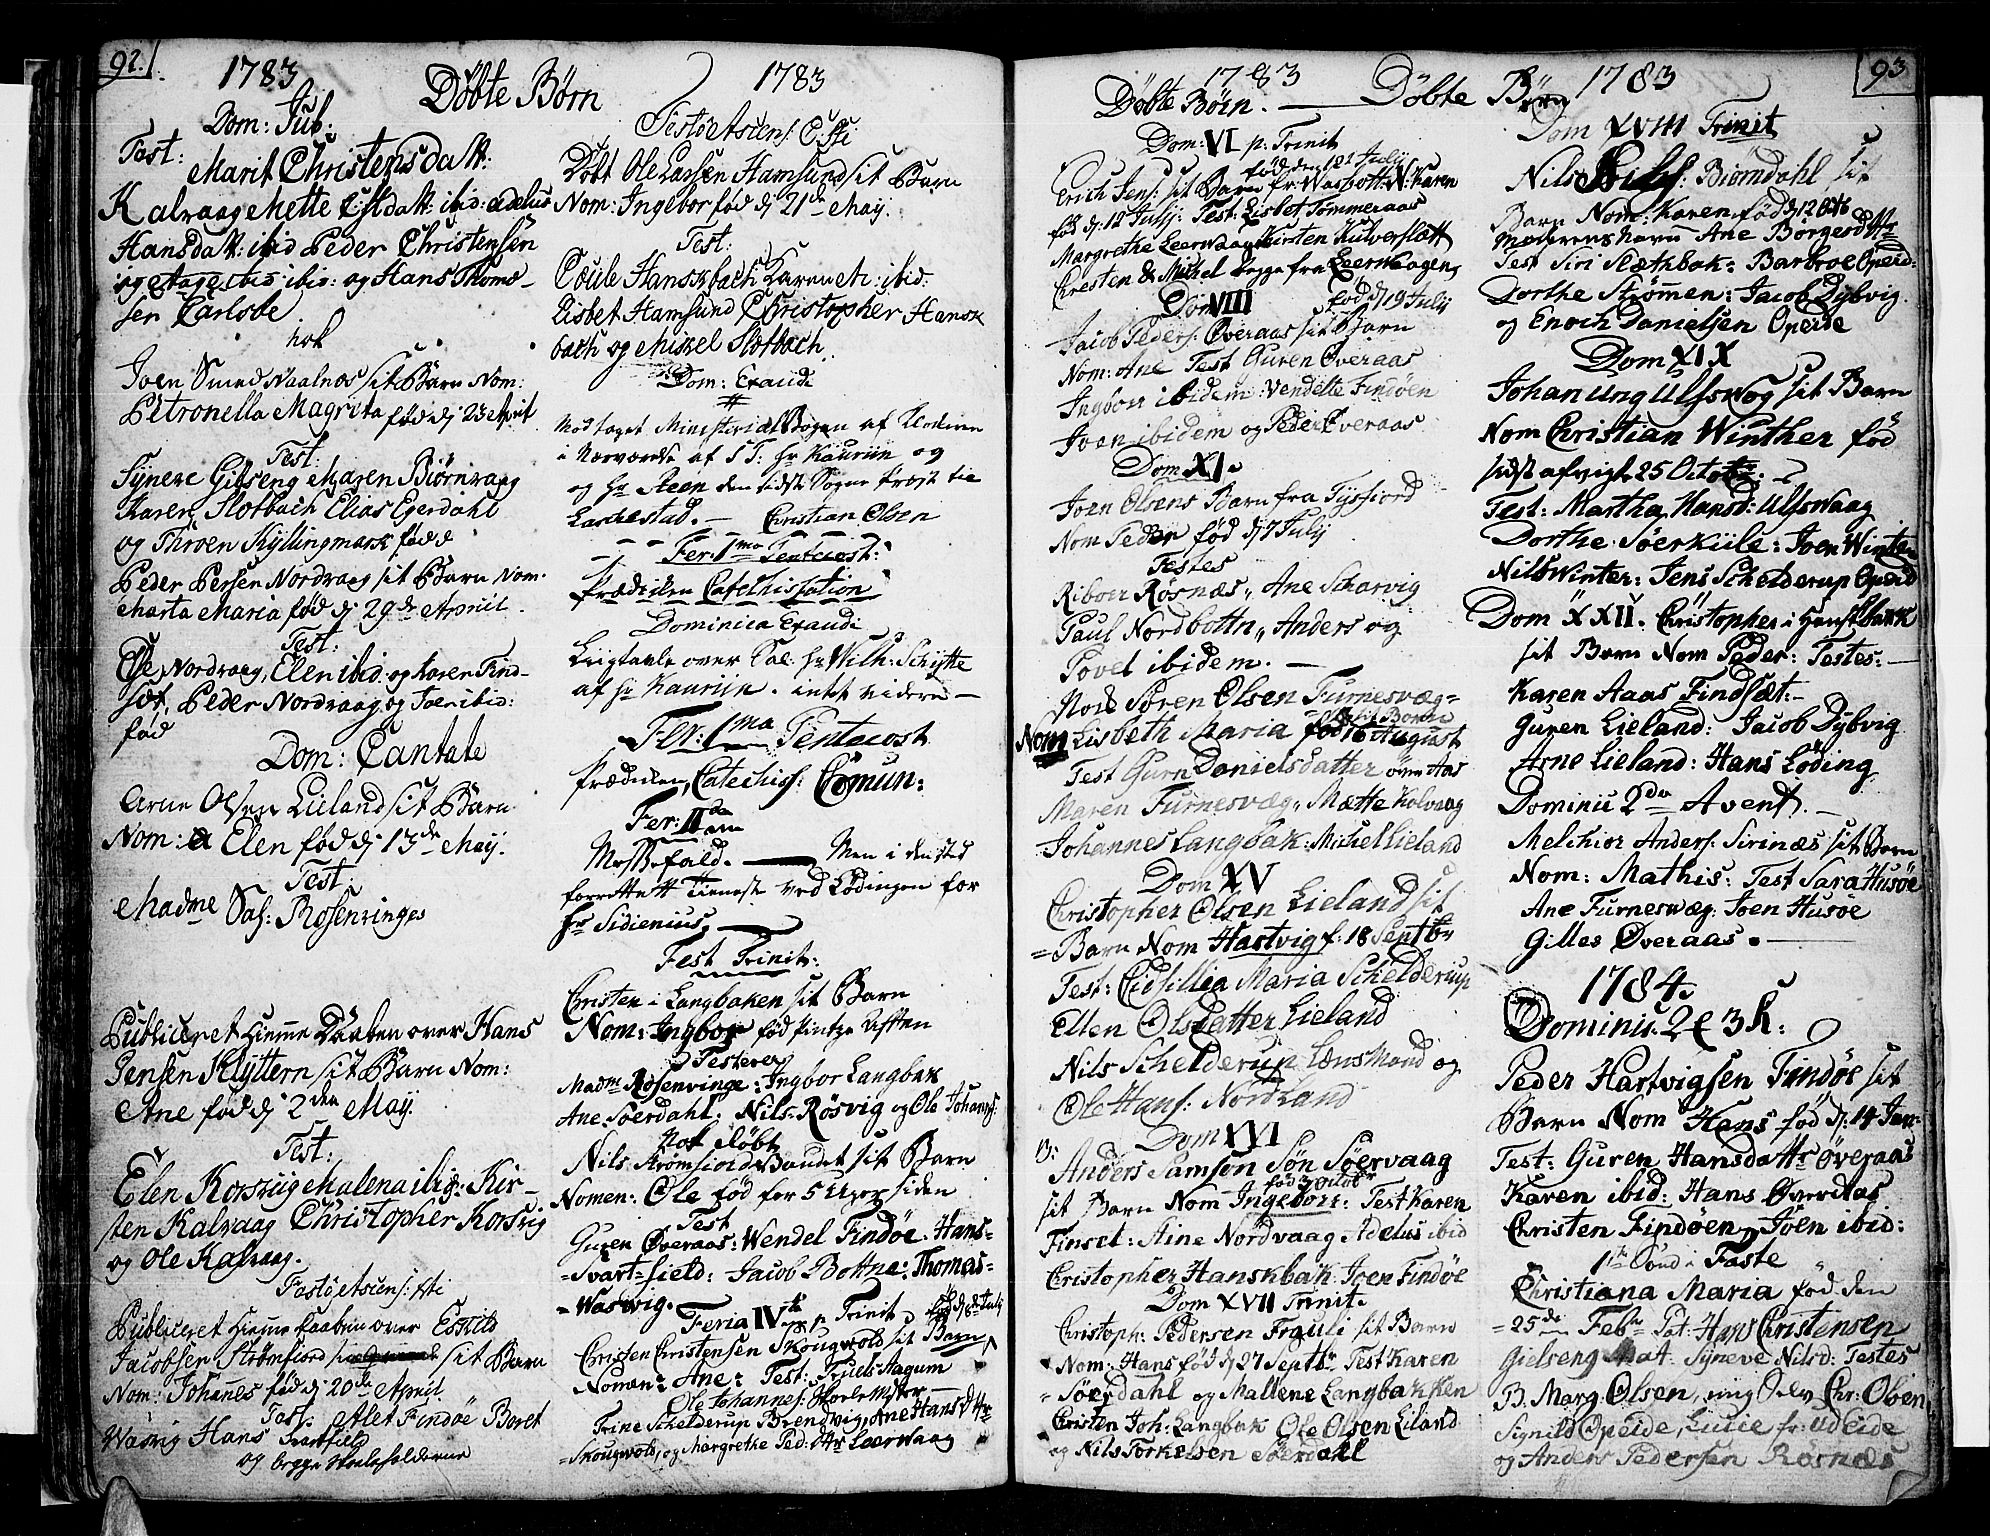 92.
1783
Döbte Børn
1783
Dom: Jub:
Test:
Marit Christensdatt:
Kalvaag Mette ibid: Adelus
Hansdatt: ibid Peder Christensen
ibid: og Hans Thomæ-
sen Carlsöe
nok
Joen Smed Naalnæs sit Barn Nom:
Petronella Magrita fød d 23 April
Test:
Syneve Gilseng Maren Biørnvaag
Karen Slotbach Elias Egerdahl
og Throen Kyllingmark født
Peder Persen Nordvaag sit Barn Nom.
Marta Maria fød d 29de April.
Test:
Else Nordvaag, Elen ibid. og Karen Find-
sæt, Peder Nordvaag og Joen ibid:
fød
Dom: Cantate
Arne Olsen Lieland sit Barn
Nom: Elen fød d 13de May.
Test:
Madme Sal: Rosenvinges
Publiceret Hiemme Daaben over Hans
Jensen Klyttern sit Barn Nom:
Ane fød d 2den May.
Test:
Elen Korsvig Malena ibid: Kir-
sten Kalvaag Christopher Korsvig
og Ole Kalvaag.
Fest: Ascens: Xsti
Publiceret Hiemme Daaben over Eskild
Jacobsen Strømfiord sit Barn
Nom: Johannes fød d 20de April.
Test: Alet Findöe Beret
Waswig Hans Svartfield
og begge Skoleholderne
Festo Ascens: Xsti
Döbt Ole Larsen Hamsund sit Barn
Nom: Ingebor fød d 21de May.
Test:
Hanskbach Karen ibid:
Lisbet Hamsund Christopher Hansk
bach og Mickel Slotbach.
Dom: Exaudi
#
Modtaget Ministerial Bogen af
i Nærværelse af S T: Hr Kauriin og
og Hr Steen den sidste Sogne Præst til
- Christian Olsen
Fer: 1ma Pentecost:
Prædiken Catechisation
Dominica Exaudi
Liigtale over Sal: Hr Wilh: Schytte
af Hr Kauriin. intet videre -
Fer: 1ma Pentecost
Prædiken, Catechiss: Comun:
Fer: IIda
Messefald. — Men i den sted
forrettet Tieneste ved Lødingen for
Hr Sidienius.
Fest Trinit:
Christen i Langbaken sit Barn
Nom: Ingbor fød Pintze Aften
Testerer
Madm Rosenvinge: Ingbor Langbak
Ane Soerdahl: Nils Rösvig og Ole Johanns:
Nok døbt
Nils Strømfiord Bandet sit Barn
Nomen: Ole fød for 5 Uger siden
Test
Guren Øveraas: Wendel Findöe Hans-
=Svart-field: Jacob Bottne: Thomas-
- Waswig.
Feria IVte p. Trinit fød d 8de July
Christen Christensen Skougwold sit Barn
Nomen: Ane: Test: Truels Aagum
Ole Johannes: Skole Mster
Trine Schelderup Brendvig, Ane Hans Dttr
=Skougwold, og Margrethe Ped: dttr Leerwaag
93
1783
Döbte Børn. — Döbte Börn
1783
Dom: VI p. Trinit
fød den 12te July
Erich Jens: sit Barn fr: Wasbottn N: Karen
fød d: 12 July: Test: Lisbet Tommeraas
Margrethe Leerwaag Kirsten Kulverslett
Chresten & Michel begge fra Leerwaagen
Dom VIII fød d 19 July
Jacob Peders: Øveraas sit Barn
Nom: Ane Test Guren Øveraas
Ingbor ibidem: Vendelte Findöen
Joen ibidem og Peder Øveraas
Dom XI.
Joen Olsens Barn fra Tysfiord
Nom Peder fød d 7 July
Testes
Riboer Røsnæs, Ane Scharvig
Paul Nordbottn, Anders og
Povel ibidem. —
Nok Søren Olsen Furnesvæg=
sit Barn
Nom Lisbeth Maria fød 16 August
Test Gurn Danielsdatter
Maren Furnesvæg, Mætte Kolvaag
Johannes Langbak: Michel Lieland
Dom XV
Christopher Olsen Lieland sit
=Barn Nom Hartvig f: 18 Septbr
Test: Cidsillia Maria Schelderup
Ellen Olsdatter Lieland
Nils Schelderup Lænsmand og
Ole Hans: Nordland
Dom XVI
Anders Samson Søn Söervaag
fød 3 Octobr
sit Barn Nom Ingeborr: Test Karen
Finset: Aine Nordvaag Adelus ibid
Christopher Hanskbak: Joen Findöe
Dom XVII Trinit.
Christoph: Pedersen Frauli sit Barn
Nom: Hans fød d 27 Septbr Test Karen
=Söerdahl og Mallene Langbakken
Christen Joh: Langbak Ole Olsen Liland
og Nils Torkelsen Söerdahl
Dom XVIII Trinit
Nils Nils: Biörndahl sit
Barn Nom: Karen fød d 12 Octb
Moderens navn Ane Börgesdttr
Test Siri Slætbak: Barbroe Operd:
Dorthe Strømmen: Jacob Dybvig
og Enoch Danielsen Operde
Dom XIX
Johan Ung Ulfswog sit Barn
Nom Christian Winther fød
sidst afvigt 25 Octobr:
Test: Martha Hansd: Ulfswaag
Dorthe Söerkule: Joen Winter
Nils Winter: Jens Schelderup Operd
Dom XXII. Christopher i Hanskbakk
sit Barn Nom Peder: Testes: —
Karen Aaas Findsæt: -
Guren Lieland: Jacob Dybvig
Arne Lieland: Hans Löding
Dominic 2da Avent. —
Melchior Anders: Sirinæs sit Barn
Nom: Mathis: Test Sara Husöe
Ane Furneswæg: Joen Husöe
Gilles Øveraas. —
1784.
Dominic. 2 & 3 K:
Peder Hartvigsen Findöe sit
Barn Nom Hans fød d: 14 Jan:
Test: Guren Hansdattr Øveraas
Karen ibid: Hans Øverdas
Christen Findöen, Joen ibid:
1te Sønd i Faste
Christiana Maria fød den
=25de Febr Pat: Hans Christensen
Gielseng Mat: Syneve Nilsd: Testes
B. Marg: Olsen, mig Selv Chr: Olsen
Signild Opeide, Lucie fr: Udeide
og Anders Pedersen Rösnæs